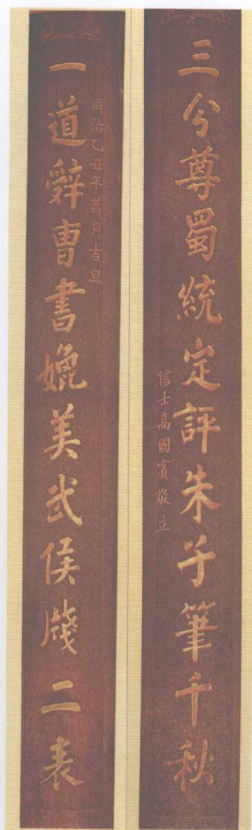 三分尊蜀統定評朱子筆千秋
信士高國賓敬立
同治乙丑年月吉旦
一道辭曹書媲美武侯牋二表